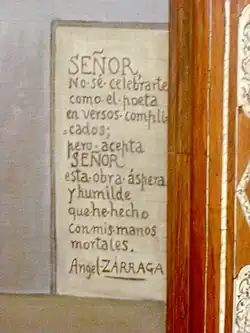 SEÑOR,
No·sé·celebrarte
como·el·poeta
en·versos·compli-
-cados;
pero·acepta
SEÑOR
esta·obra·áspera
y·humilde
que·he·hecho
con·mis·manos
mortales.
Angel·ZÁRRAGA